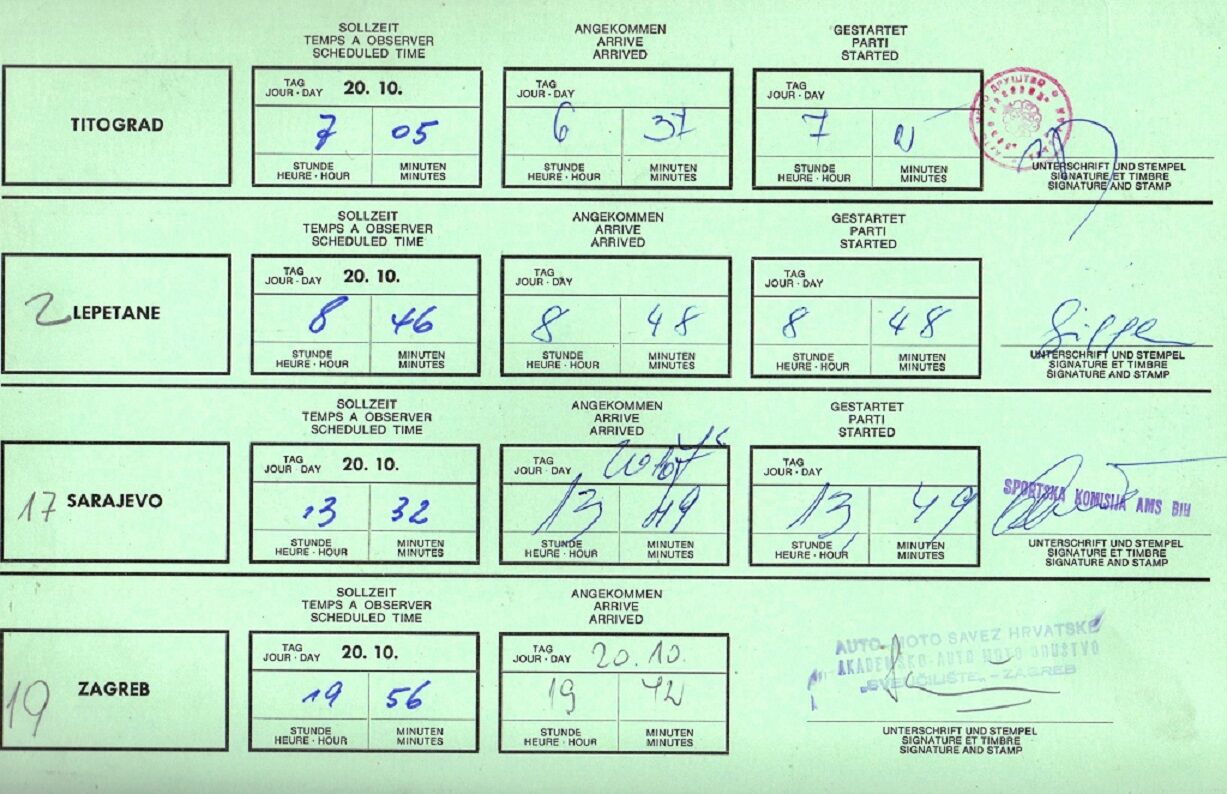 SOLLZEIT
TEMPS A OBSERVER
SCHEDULED TIME
ANGEKOMMEN
ARRIVE
ARRIVED
GESTARTET
PARTI
STARTED
TITOGRAD
TAG
JOUR · DAY 20. 10.
7 05
STUNDE MINUTEN
HEURE · HOUR MINUTES
TAG
JOUR · DAY
6 37
STUNDE MINUTEN
HEURE · HOUR MINUTES
TAG
JOUR · DAY
7
STUNDE MINUTEN
HEURE · HOUR MINUTES
UNTERSCHRIFT UND STEMPEL
SIGNATURE ET TIMBRE
SIGNATURE AND STAMP
SOLLZEIT
TEMPS A OBSERVER
SCHEDULED TIME
ANGEKOMMEN
ARRIVE
ARRIVED
GESTARTET
PARTI
STARTED
2 LEPETANE
TAG
JOUR · DAY 20. 10.
8 46
STUNDE MINUTEN
HEURE · HOUR MINUTES
TAG
JOUR · DAY
8 48
STUNDE MINUTEN
HEURE · HOUR MINUTES
TAG
JOUR · DAY
8 48
STUNDE MINUTEN
HEURE · HOUR MINUTES
UNTERSCHRIFT UND STEMPEL
SIGNATURE ET TIMBRE
SIGNATURE AND STAMP
SOLLZEIT
TEMPS A OBSERVER
SCHEDULED TIME
ANGEKOMMEN
ARRIVE
ARRIVED
GESTARTET
PARTI
STARTED
17 SARAJEVO
TAG
JOUR · DAY 20. 10.
13 32
STUNDE MINUTEN
HEURE · HOUR MINUTES
TAG
JOUR · DAY
13 49
STUNDE MINUTEN
HEURE · HOUR MINUTES
TAG
JOUR · DAY
13 49
STUNDE MINUTEN
HEURE · HOUR MINUTES
SPORTSKA KOMISIJA AMS BIH
UNTERSCHRIFT UND STEMPEL
SIGNATURE ET TIMBRE
SIGNATURE AND STAMP
SOLLZEIT
TEMPS A OBSERVER
SCHEDULED TIME
ANGEKOMMEN
ARRIVE
ARRIVED
19 ZAGREB
TAG
JOUR · DAY 20. 10.
19 56
STUNDE MINUTEN
HEURE · HOUR MINUTES
TAG
JOUR · DAY 20.10.
19 42
STUNDE MINUTEN
HEURE · HOUR MINUTES
AUTO MOTO SAVEZ HRVATSKE
AKADEMSKO AUTO MOTO DRUŠTVO
„SVEUČILIŠTE" - ZAGREB
UNTERSCHRIFT UND STEMPEL
SIGNATURE ET TIMBRE
SIGNATURE AND STAMP